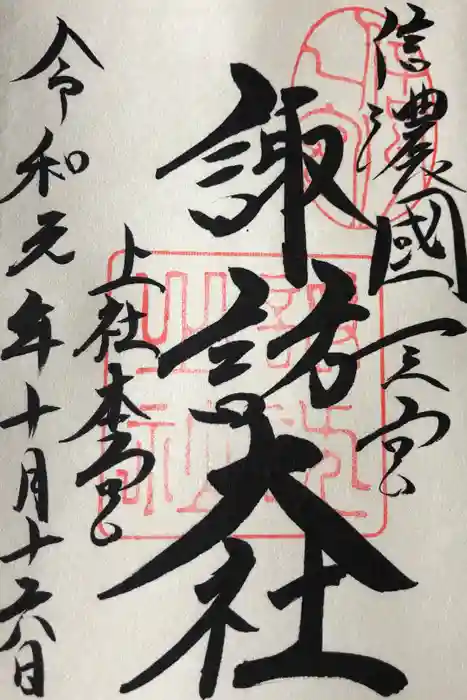 信濃國一之宮
諏訪大社
上社本宮
令和元年十月十六日